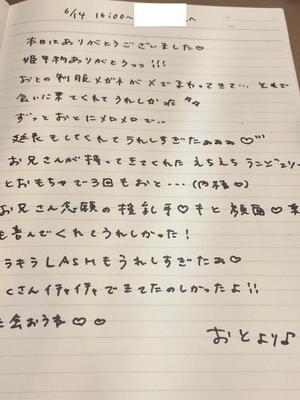 6/14 16:00〜 へ
本日はありがとうございました♡
姫予約ありがとうっっ!!!
おとの制服メガネがXでまわってきて… それで
会いに来てくれてうれしかった
ずっとおとにメロメロで…
延長もしてくれてうれしすぎたぁぁぁ♡
お兄さんが持ってきてくれた えちえちランジェリー
とおもちゃで3回もおと…(内緒♡)
お兄さん念願の授乳手♡キと顔面♡
も喜んでくれてうれしかった!
ラキラLASHもうれしすぎたぁ♡
くさんイチャイチャできてたのしかったよ!!
会おうね♡♡
おとより♪